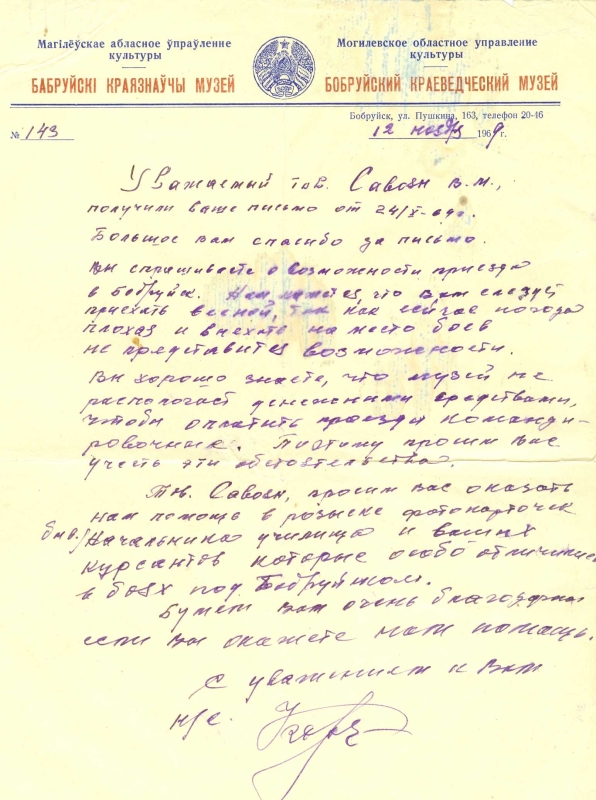 Магілёўскае абласное ўпраўленне
культуры
БАБРУЙСКІ КРАЯЗНАЎЧЫ МУЗЕЙ
Могилевское областное управление
культуры
БОБРУЙСКИЙ КРАЕВЕДЧЕСКИЙ МУЗЕЙ
Бобруйск, ул. Пушкина, 163, телефон 20-46
№ 143
12 ноября 1969 г.
Уважаемый тов. Савоян В.М.,
получили ваше письмо от 24/X-с.г.
Большое вам спасибо за письмо.
Вы спрашиваете о возможности приезда
в Бобруйск. Нам кажется, что Вам следует
приехать весной, так как сейчас погода
плохая и выехать на место боев
не представится возможности.
Вы хорошо знаете, что музей не
располагает денежными средствами,
чтобы оплатить проезд и командировочные
Поэтому просим Вас
учесть эти обстоятельства.
Тов. Савоян, просим вас оказать
нам помощь в розыске фотокарточек
быв./ Начальника училища и ваших
курсантов которые особо отличились
в боях под Бобруйском.
Будем вам очень благодарны
если вы окажете нам помощь.
С уважением к Вам